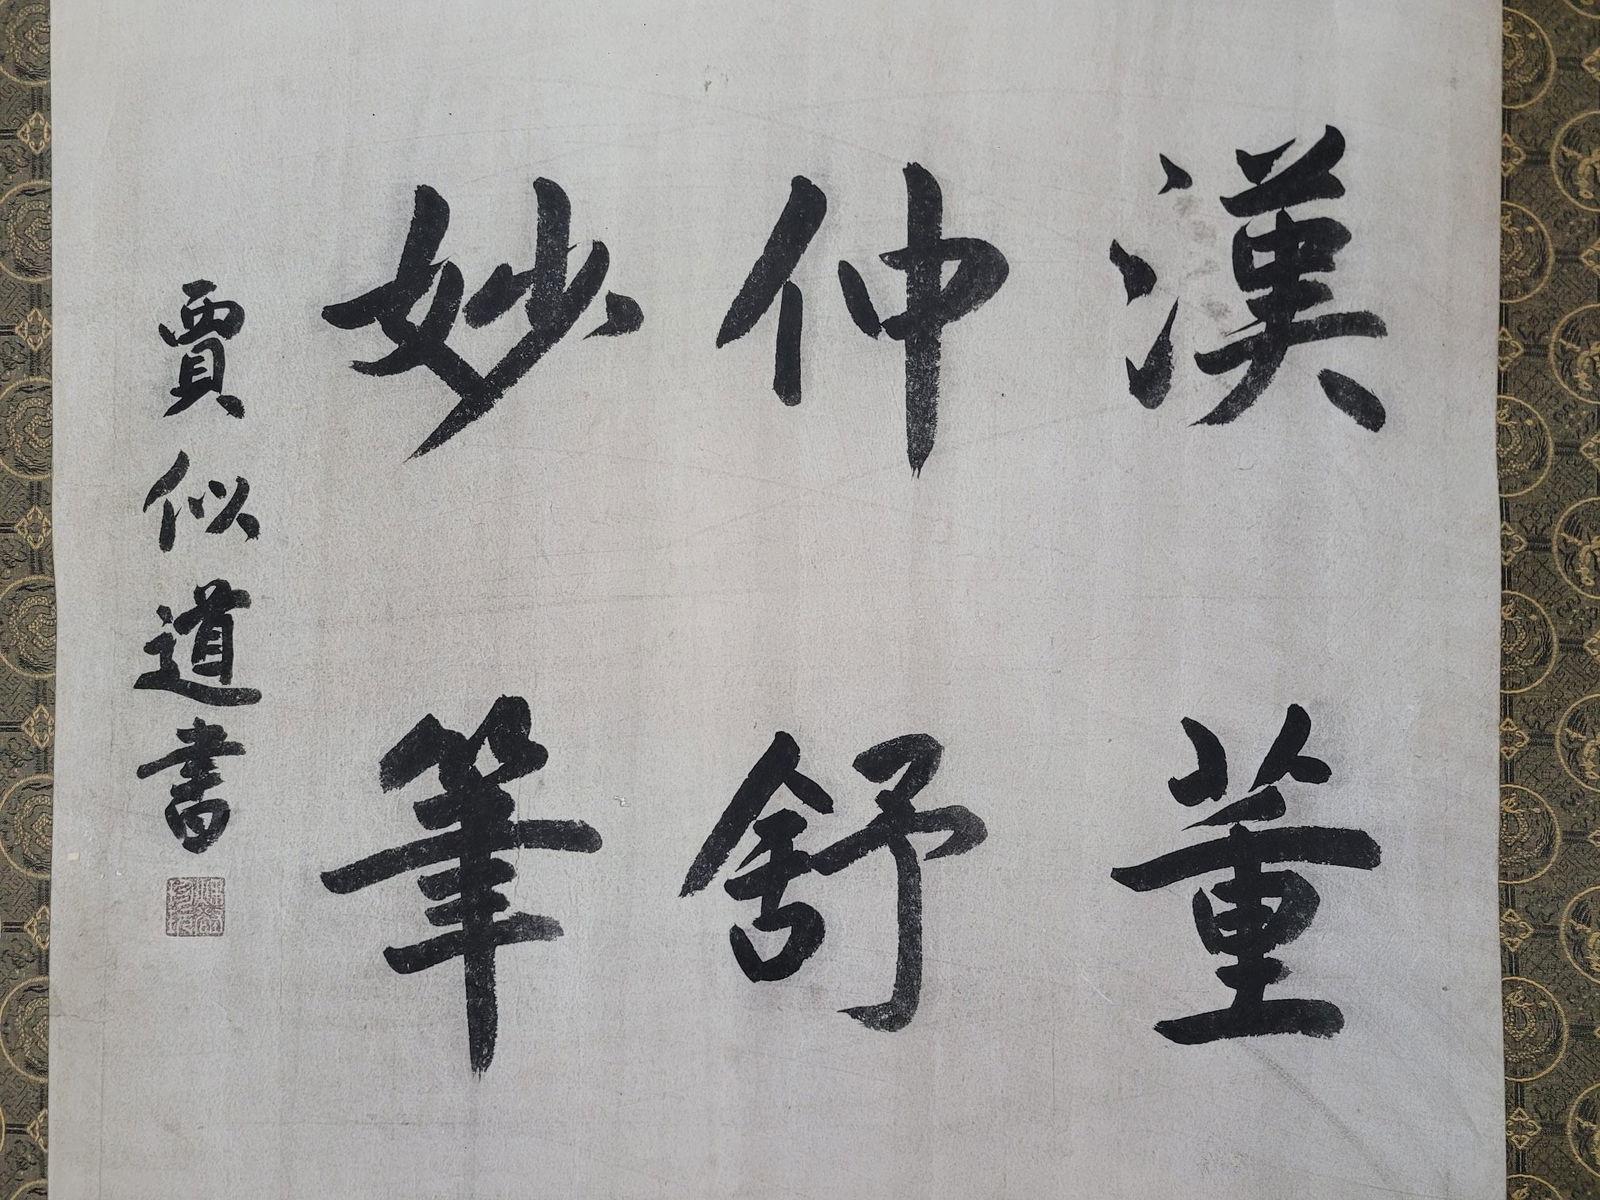 漢董
仲舒
妙筆
賈似道書